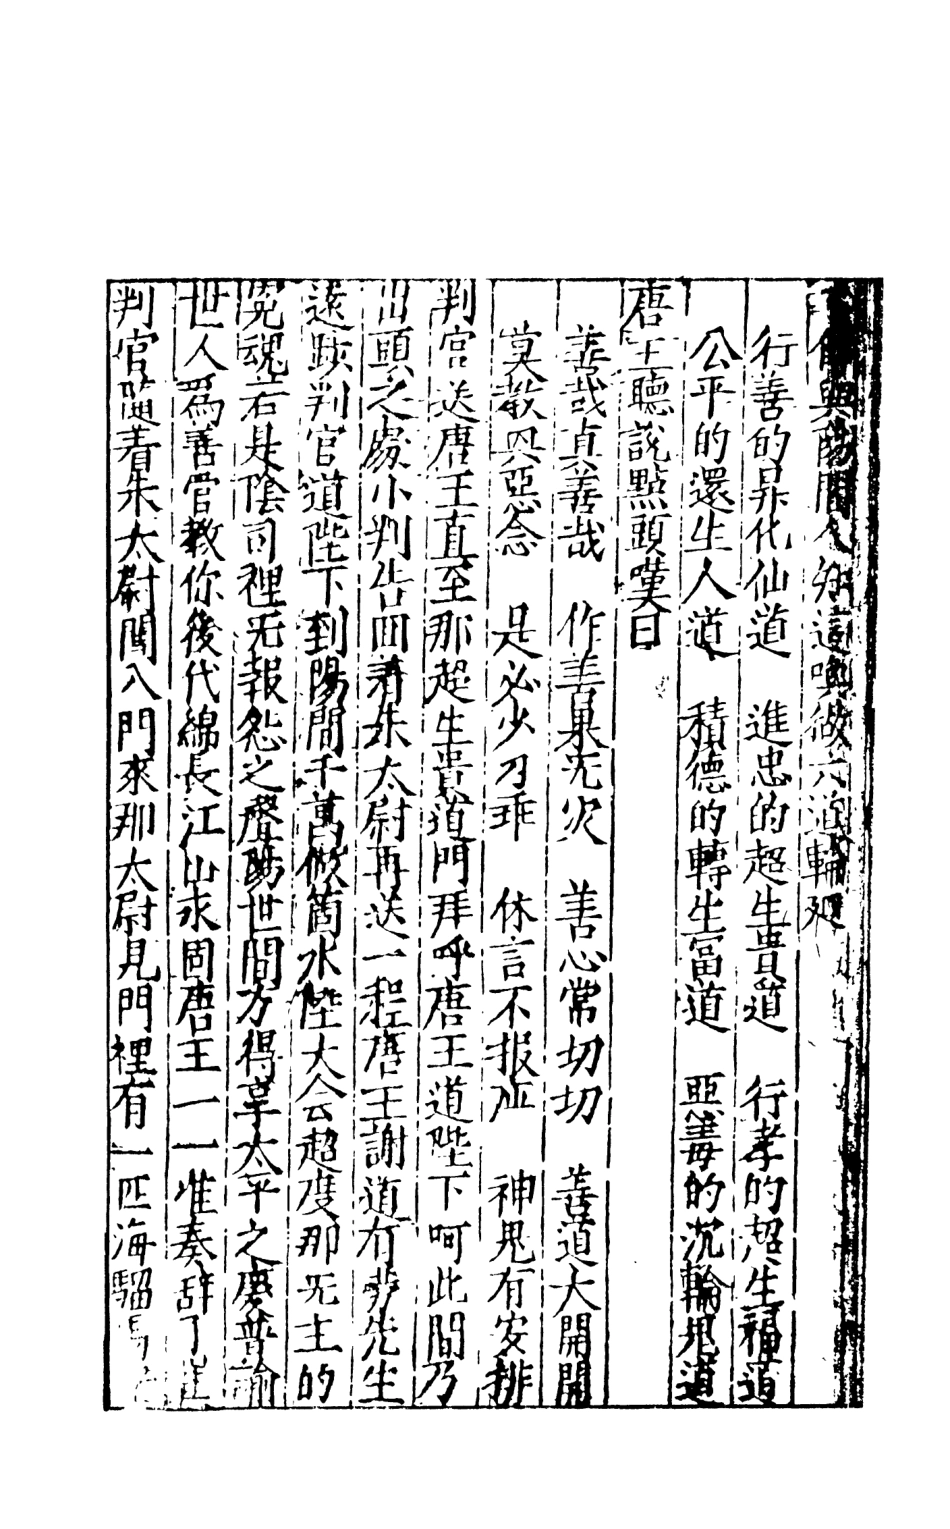 與陽間人知這喚做六道輪廻
行善的昇化仙道　進忠的超生貴道　行孝的超生福道
公平的還生人道　積德的轉生冨道　惡毒的沉輪鬼道
唐王聽說點頭嘆曰
善哉真善哉　作善果无災　善心常切切　善道大開開
莫教興惡念　是必少刁乖　休言不报应　神鬼有安排
判官送唐王直至那超生貴道門拜呼唐王道陛下呵此間乃
出頭之處小判告囬着朱太尉再送一程唐王謝道有勞先生
遠跋判官道陛下到陽間千萬做箇水陸大会超度那无主的
冤魂若是陰司裡无報怨之聲陽世間方得享太平之慶普諭
世人爲善管教你後代綿長江山永固唐王一一准奏辞了崔
判官隨着朱太尉闖入門來那太尉見門裡有一匹海騮馬